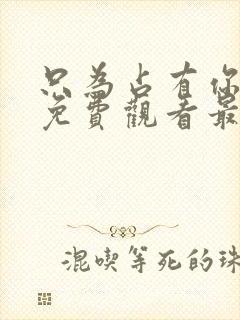 只為占有你
免費觀看最
混喫等死的珠